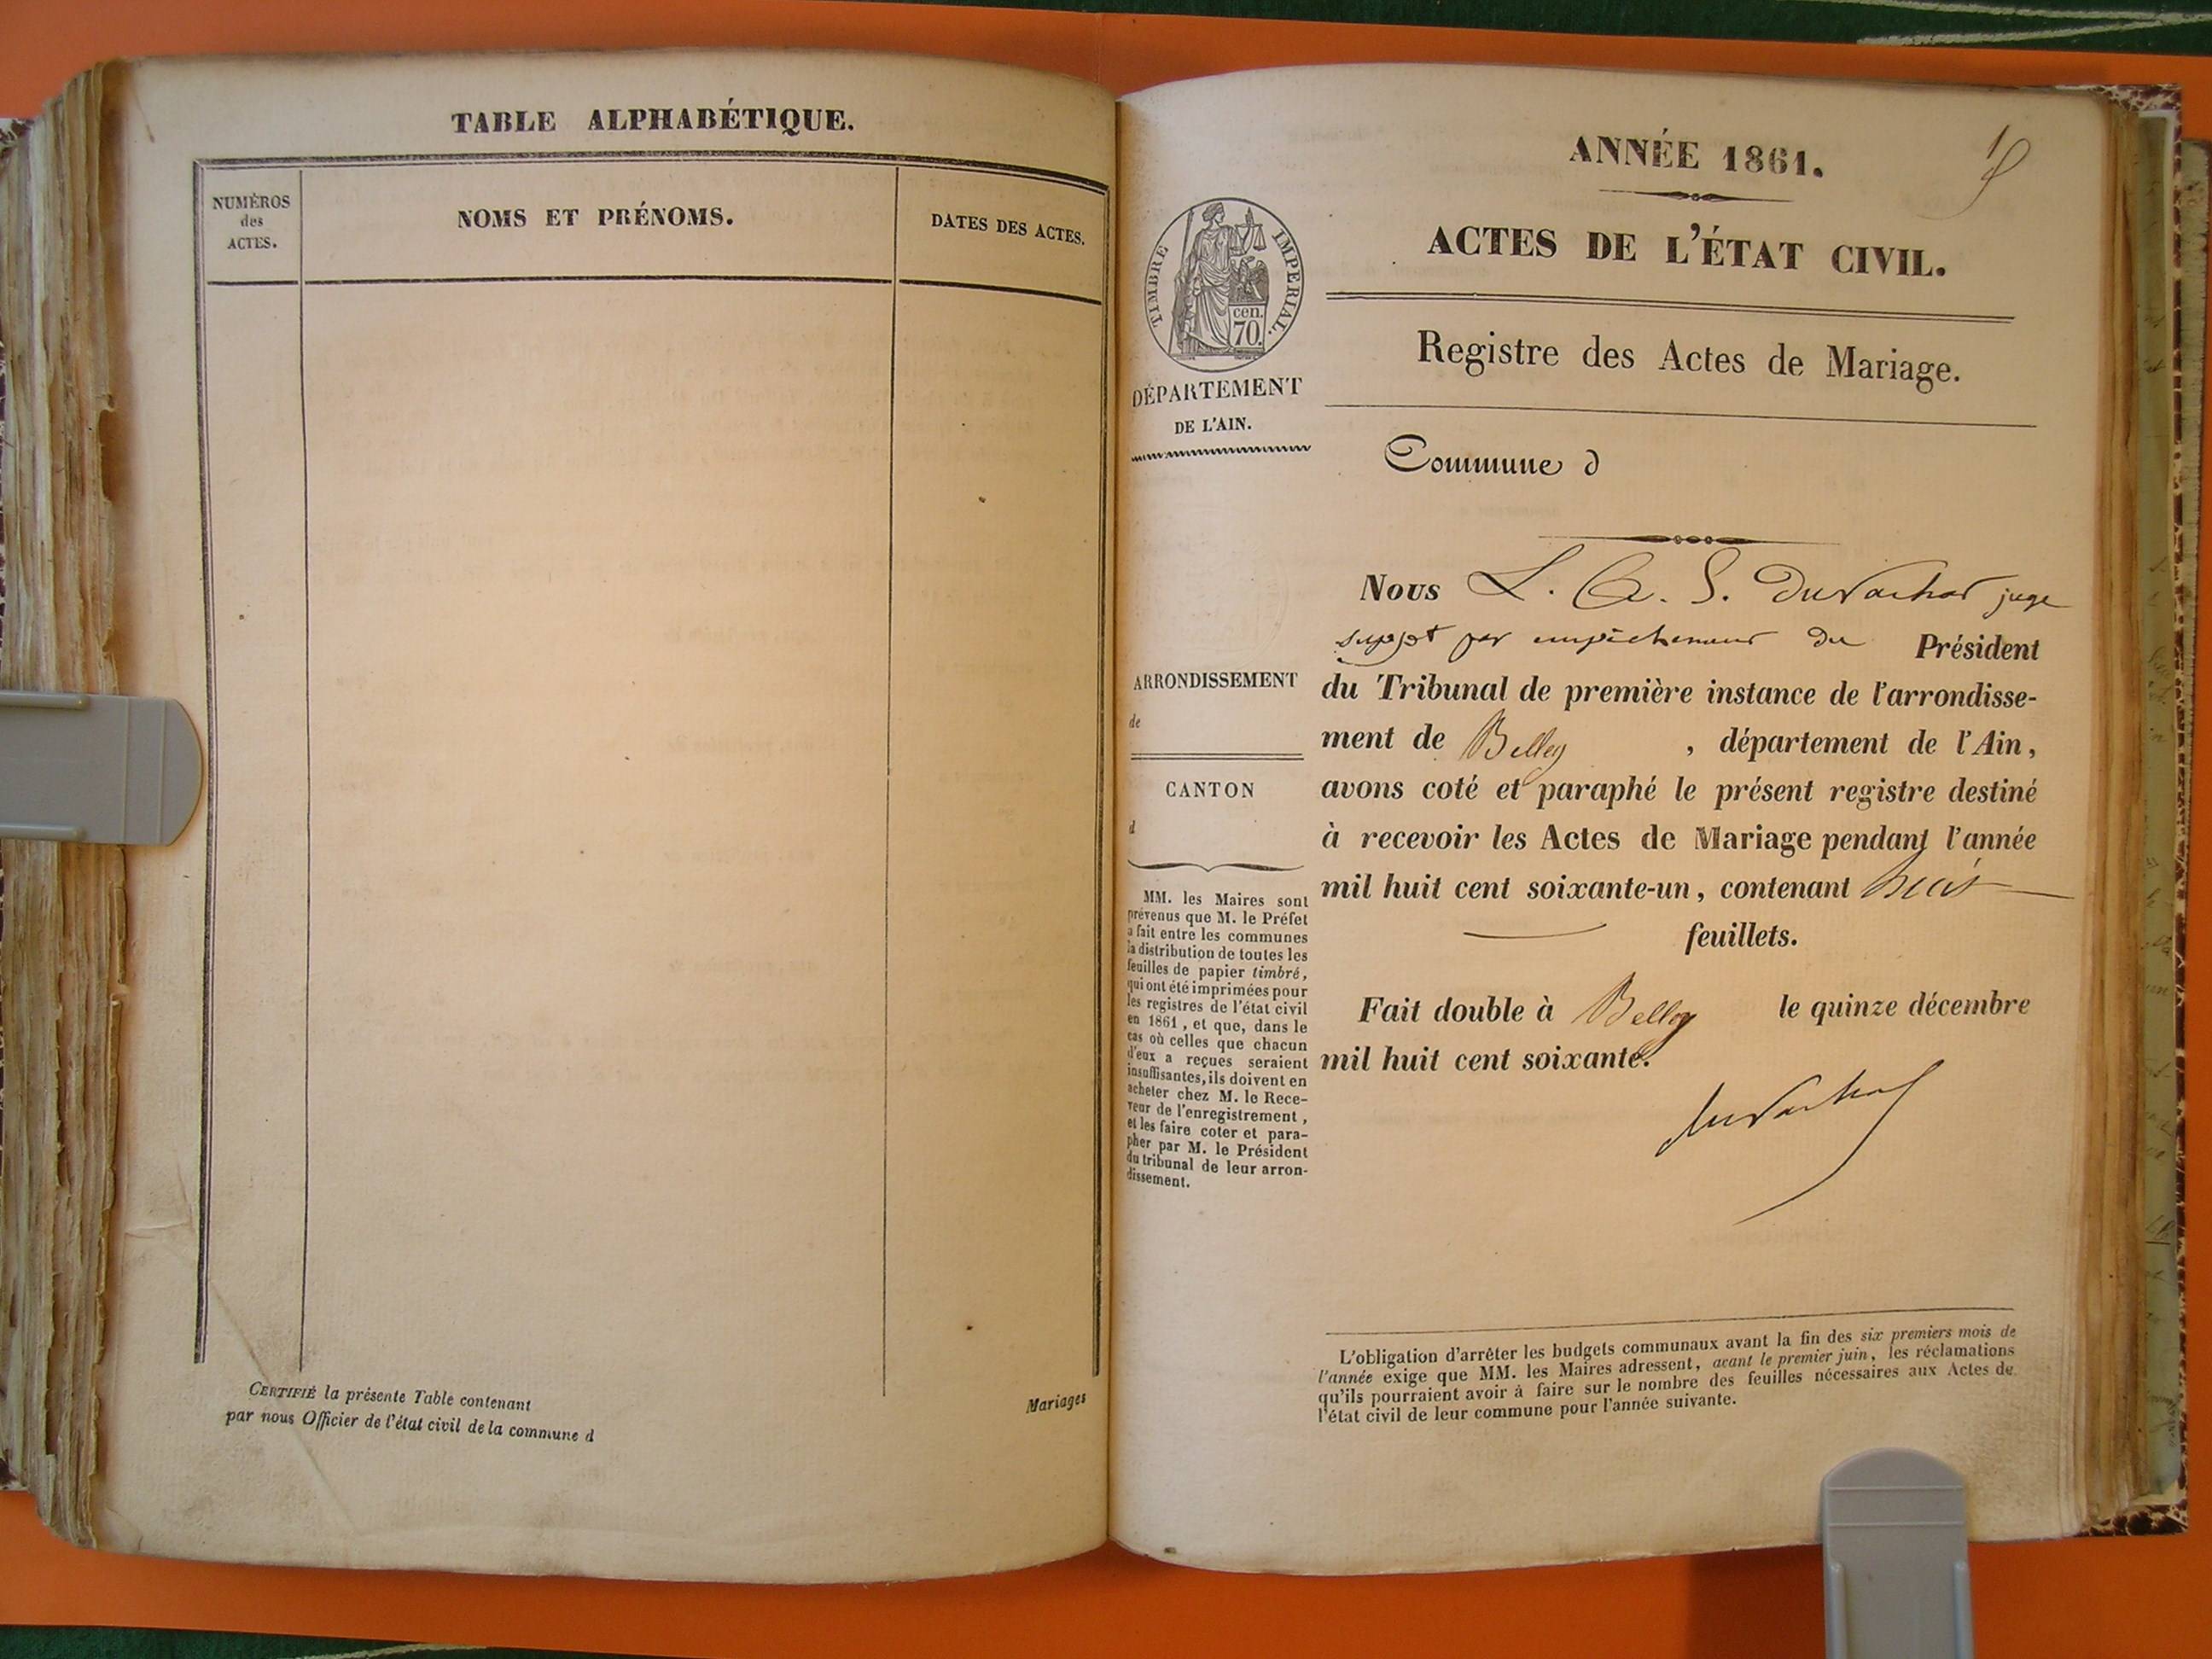 TABLE ALPHABÉTIQUE.
NUMÉROS
des
ACTES.
NOMS ET PRÉNOMS.
DATES DES ACTES.
CERTIFIÉ la présente Table contenant
par nous Officier de l'état civil de la commune d
Mariages
1
ANNÉE 1861.
ACTES DE L'ÉTAT CIVIL.
Registre des Actes de Mariage.
TIMBRE IMPERIAL.
cen.
70.
DÉPARTEMENT
DE L'AIN.
Commune d
ARRONDISSEMENT
de
CANTON
d
MM. les Maires sont
prévenus que M. le Préfet
a fait entre les communes
la distribution de toutes les
feuilles de papier timbré,
qui ont été imprimées pour
les registres de l'état civil
en 1861, et que, dans le
cas où celles que chacun
d'eux a reçues seraient
insuffisantes, ils doivent en
acheter chez M. le Rece-
veur de l'enregistrement,
et les faire coter et para-
pher par M. le Président
du tribunal de leur arron-
dissement.
Nous L. A. S. Duvachat juge
suppt par empêchement du Président
du Tribunal de première instance de l'arrondisse-
ment de Belley, département de l'Ain,
avons coté et paraphé le présent registre destiné
à recevoir les Actes de Mariage pendant l'année
mil huit cent soixante-un, contenant
feuillets.
Fait double à Belley le quinze décembre
mil huit cent soixante.
Duvachat
L'obligation d'arrêter les budgets communaux avant la fin des six premiers mois de
l'année exige que MM. les Maires adressent, avant le premier juin, les réclamations
qu'ils pourraient avoir à faire sur le nombre des feuilles nécessaires aux Actes de
l'état civil de leur commune pour l'année suivante.